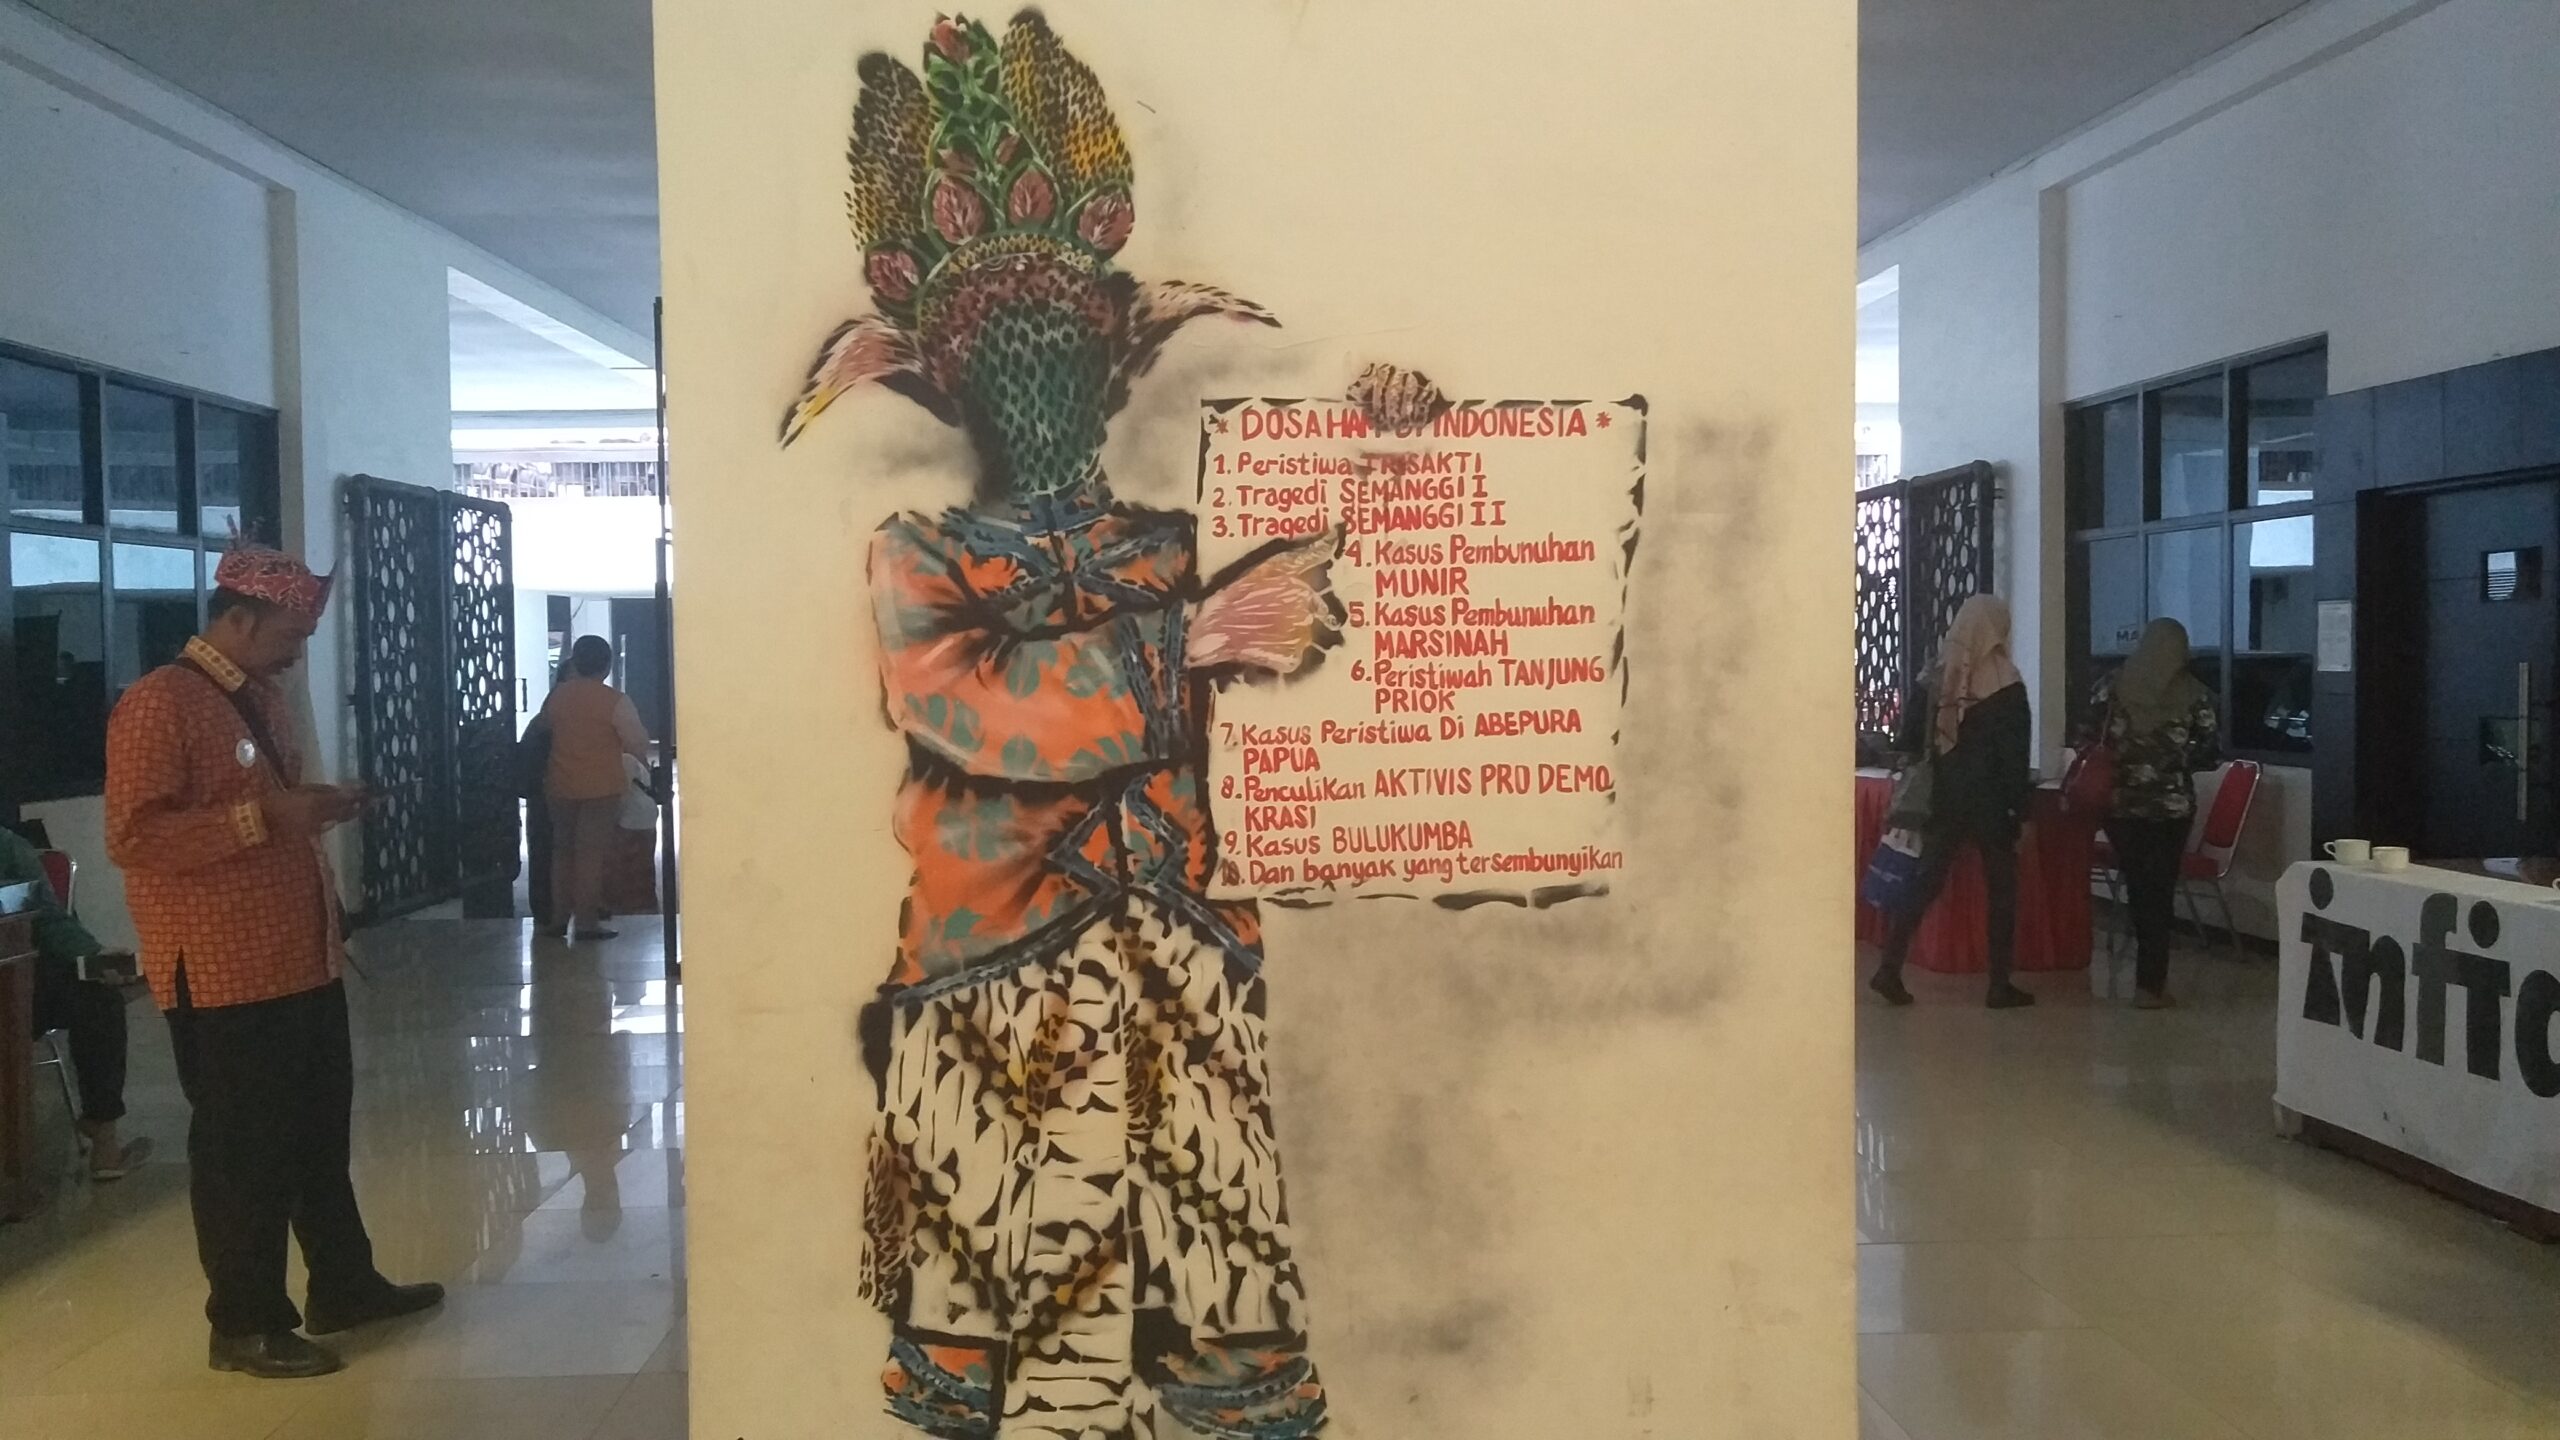 * DOSA HAM DI INDONESIA *
1. Peristiwa TRISAKTI
2. Tragedi SEMANGGI I
3. Tragedi SEMANGGI II
4. Kasus Pembunuhan
MUNIR
5. Kasus Pembunuhan
MARSINAH
6. Peristiwah TANJUNG
PRIOK
7. Kasus Peristiwa Di ABEPURA
PAPUA
8. Penculikan AKTIVIS PRO DEMO
KRASI
9. Kasus BULUKUMBA
10. Dan banyak yang tersembunyikan
MA
infid